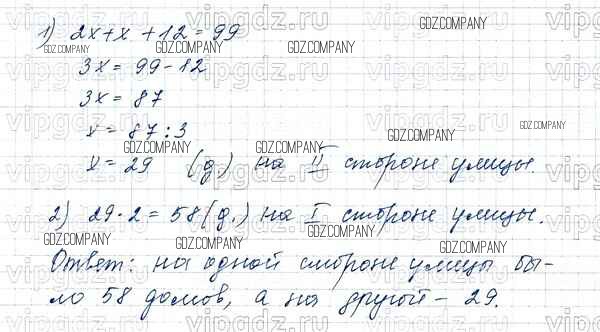 1) 2x+x+12=99
3x=99-12
3x=87
x=87:3
x=29 (д.) на II стороне улицы.
2) 29·2=58(д.) на I стороне улицы.
Ответ: на одной стороне улицы бы-
ло 58 домов, а на другой - 29.